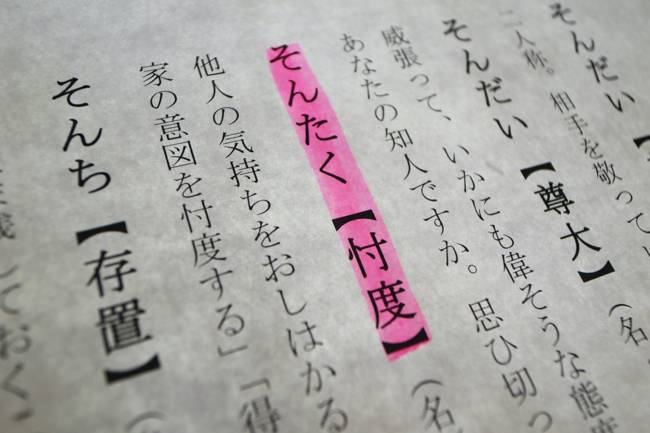 そんだい【
二人称。 相手を敬ってい
そんだい【尊大】（名
威張って、いかにも偉そうな態度
あなたの知人ですか。 思ひ切っ
そんたく【忖度】（名
他人の気持ちをおしはかる
家の意図を忖度する」「得
そんち【存置】（
しておく